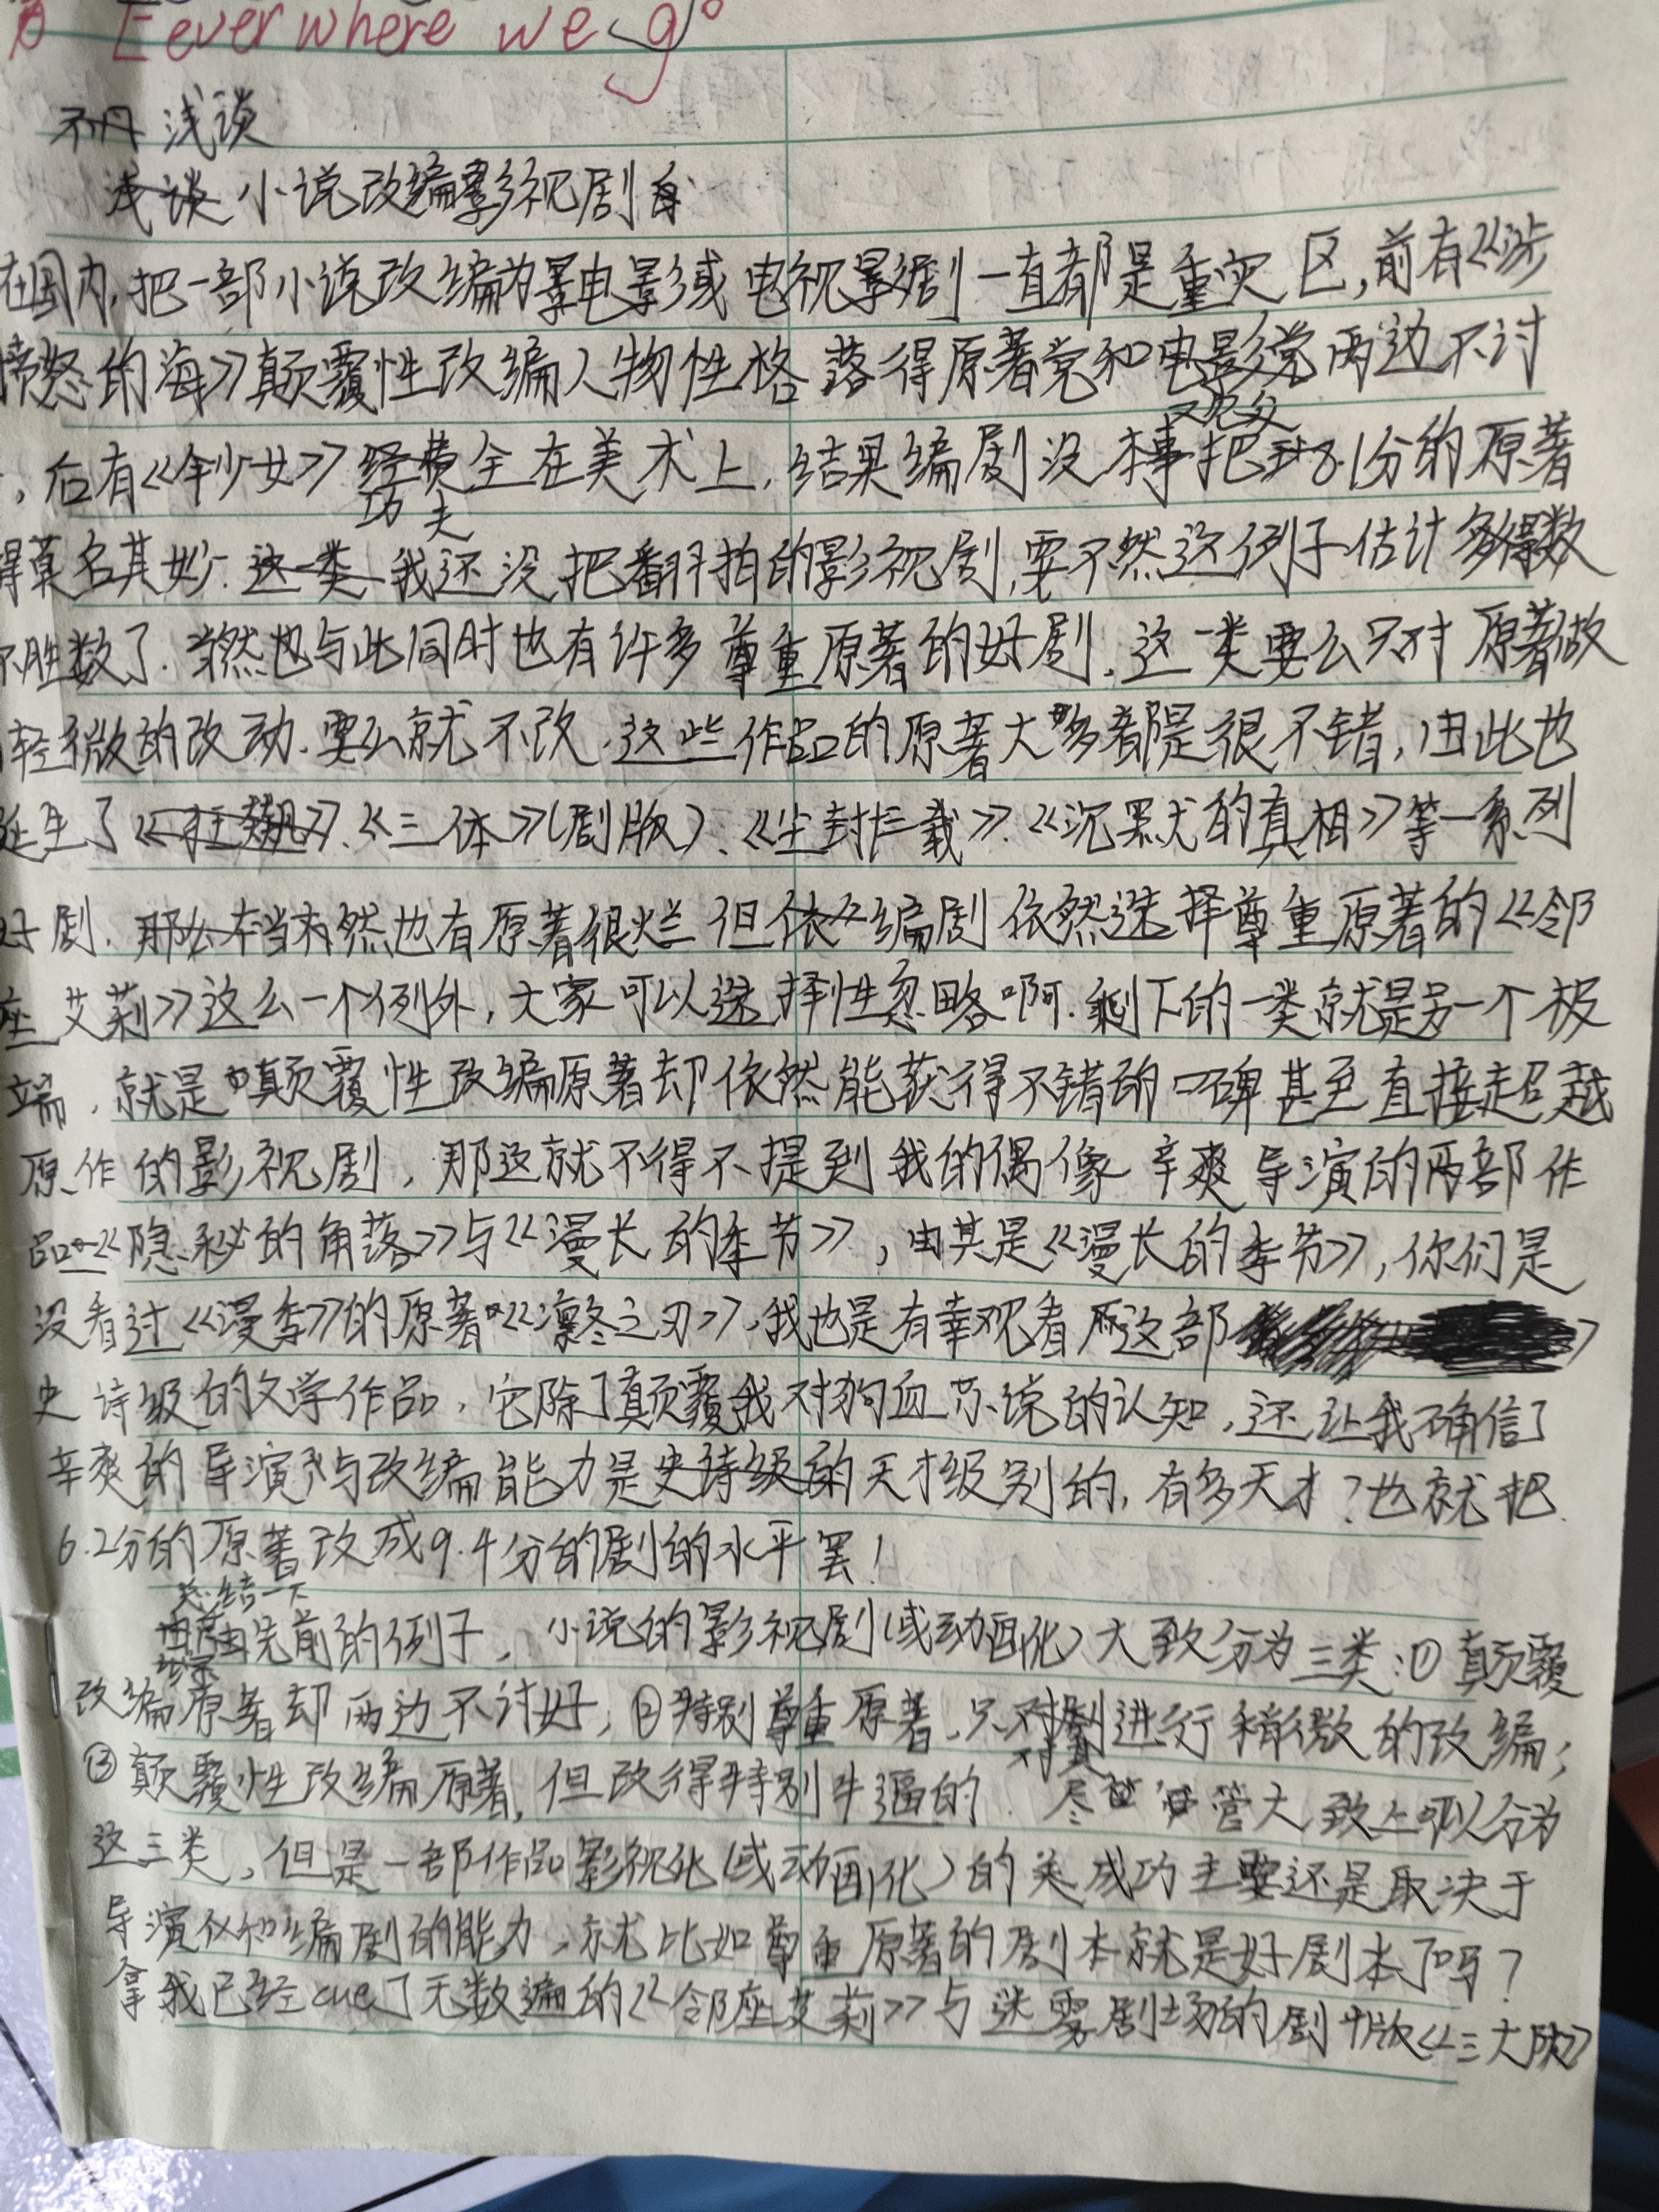 Eeverwhere we go
浅谈
小说改编影视剧
在国内,把一部小说改编为电影或电视剧一直都是重灾区,前有《涉
愤怒的海》颠覆性改编人物性格落得原著党和电影党两边不讨
,后有《余少女》功夫全在美术上,结果编剧没本事把8.1分的原著
得莫名其妙.我还没把翻拍的影视剧,要不然这例子估计多得数
不胜数了.当然也与此同时也有许多尊重原著的好剧.这一类要么只对原著做
轻微的改动.要么就不改.这些作品的原著大多都是很不错,由此也
延生了《狂飙》.《三体》(剧版)、《尘封十三载》.《沉默的真相》等一系列
好剧.当然也有原著很烂但编剧依然选择尊重原著的《邻
座艾莉》这么一个例外,大家可以选择性忽略啊.剩下的一类就是另一个极
端,就是颠覆性改编原著却依然能获得不错的口碑甚至直接超越
原作的影视剧,那这就不得不提到我的偶像辛爽导演的两部作
品《隐秘的角落》与《漫长的季节》,由其是《漫长的季节》,你们是
没看过《漫季》的原著《凛冬之刃》,我也是有幸观看这部
史诗级的文学作品,它除了颠覆我对狗血小说的认知,还让我确信了
辛爽的导演与改编能力是天才级别的,有多天才?也就把
6.2分的原著改成9.4分的剧的水平罢!
总结一下
先前的例子,小说的影视剧(或动画化)大致分为三类:①颠覆
改编原著却两边不讨好;②特别尊重原著,只对其进行稍微的改编;
③颠覆性改编原著,但改得特别牛逼的.尽管大致上可以分为
这三类,但是一部作品影视化(或动画化)的成功主要还是取决于
导演和编剧的能力,就比如尊重原著的剧本就是好剧本了吗?
拿我已经cue了无数遍的《邻座艾莉》与迷雾剧场的剧版《三大队》